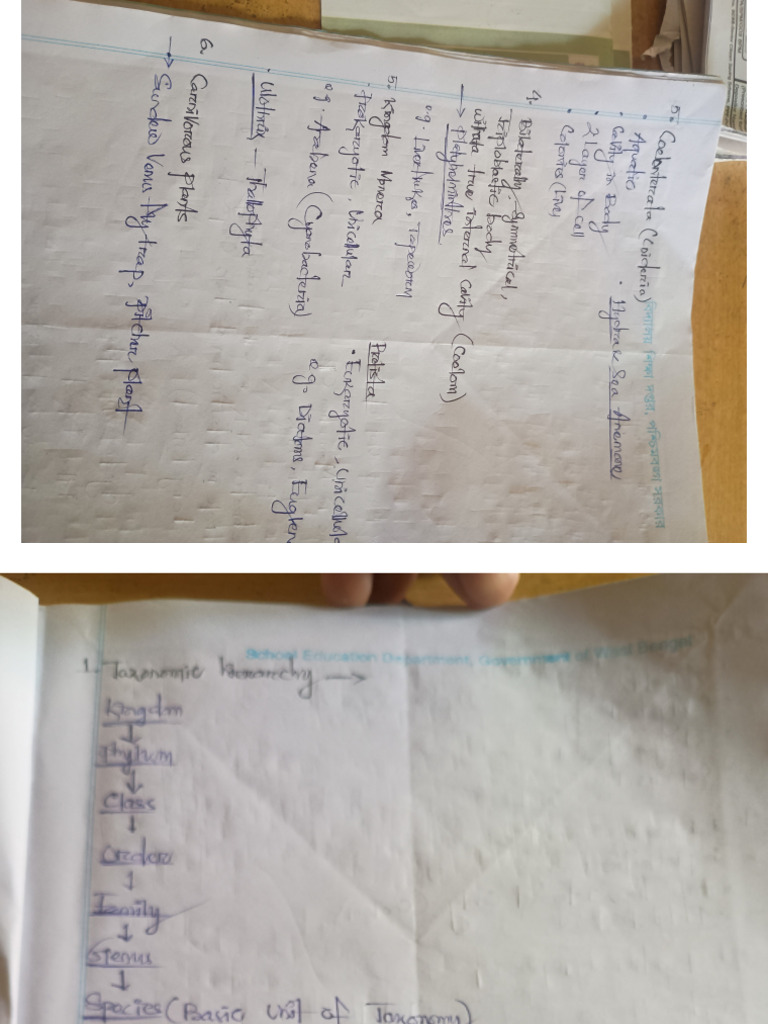 5. Coelenterata (Cnidaria)
বিদ্যালয় শিক্ষা দপ্তর, পশ্চিমবঙ্গ সরকার
• Aquatic
• Cavity in Body
• Hydra & Sea Anemone
• 2 layer of cell
• Colonies (Live)
4. Bilaterally-Symmetrical,
Triploblastic body
without true internal cavity (Coelom)
→ Platyhelminthes
eg. Liverflukes, Tapeworm
5. Kingdom Monera
• Prokaryotic, Unicellular
eg. Anabena (Cynobacteria)
Protista
• Eukaryotic, Unicellula
eg. Diatoms, Euglen
• Ulothrix — Thallophyta
6. Carnivorous plants
→ Sundew Venus flytrap, pitcher plant
School Education Department, Government of West Bengal
1. Taxonomic hierarchy →
Kingdm
↓
Phylum
↓
Class
↓
Order
↓
Family
↓
Genus
↓
Species (Basic Unit of Taxonomy)